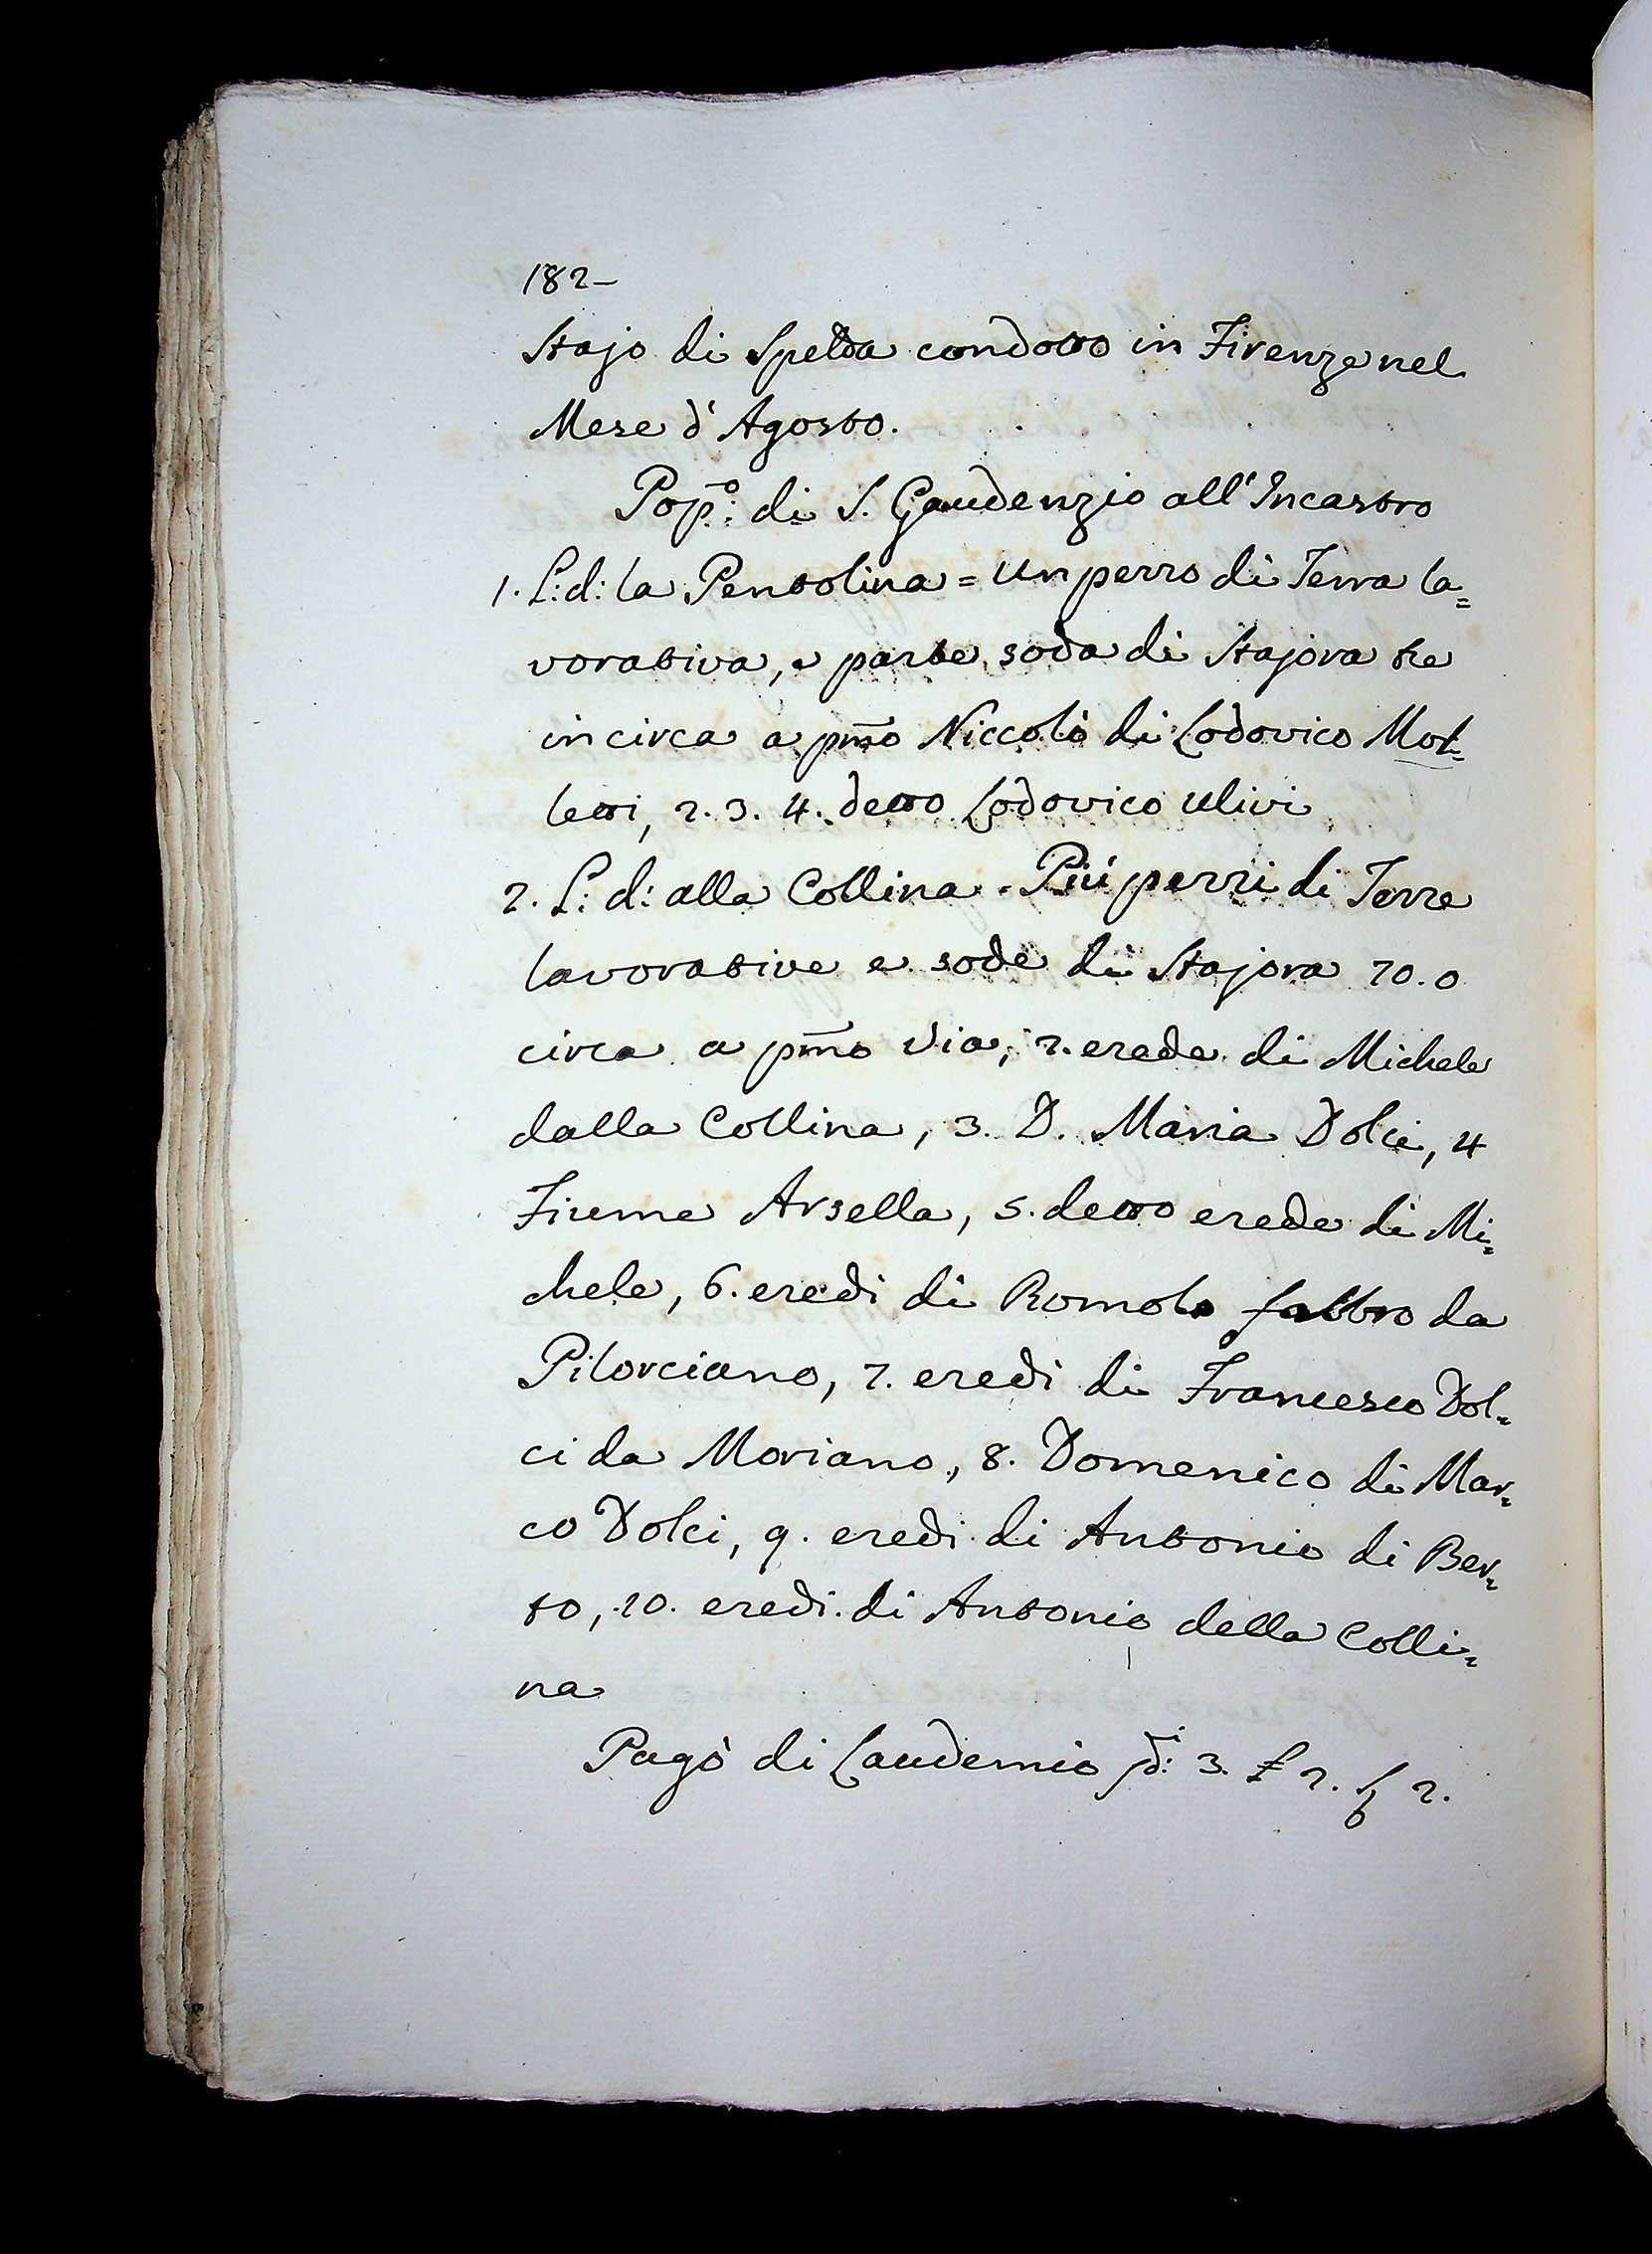 182-
Stajo di Spelda condotto in Firenze nel
Mese d'Agosto.
Pop.o: di S. Gaudenzio all'Incastro
1. L: d: la Pentolina = Un pezzo di Terra la=
vorativa, e parte soda di Stajora tre
in circa a pmo Niccolò di Lodovico Mat=
tetti, 2. 3. 4. detto Lodovico Ulivi
2. L: d: alla Collina - Più pezzi di Terre
lavorative e sode di Stajora 20.0
circa a pmo via, 2. erede di Michele
dalla Collina, 3. D. Maria Dolci, 4
Fiume Arsella, 5. detto erede di Mi=
chele, 6. eredi di Romolo fabbro da
Pilorciano, 7. eredi di Francesco Dol=
ci da Moriano, 8. Domenico di Mar=
co Dolci, 9. eredi di Antonio di Ber=
to, 10. eredi di Antonio della Colli=
na
Pagò di Laudemio di 3. £ 2. 2.